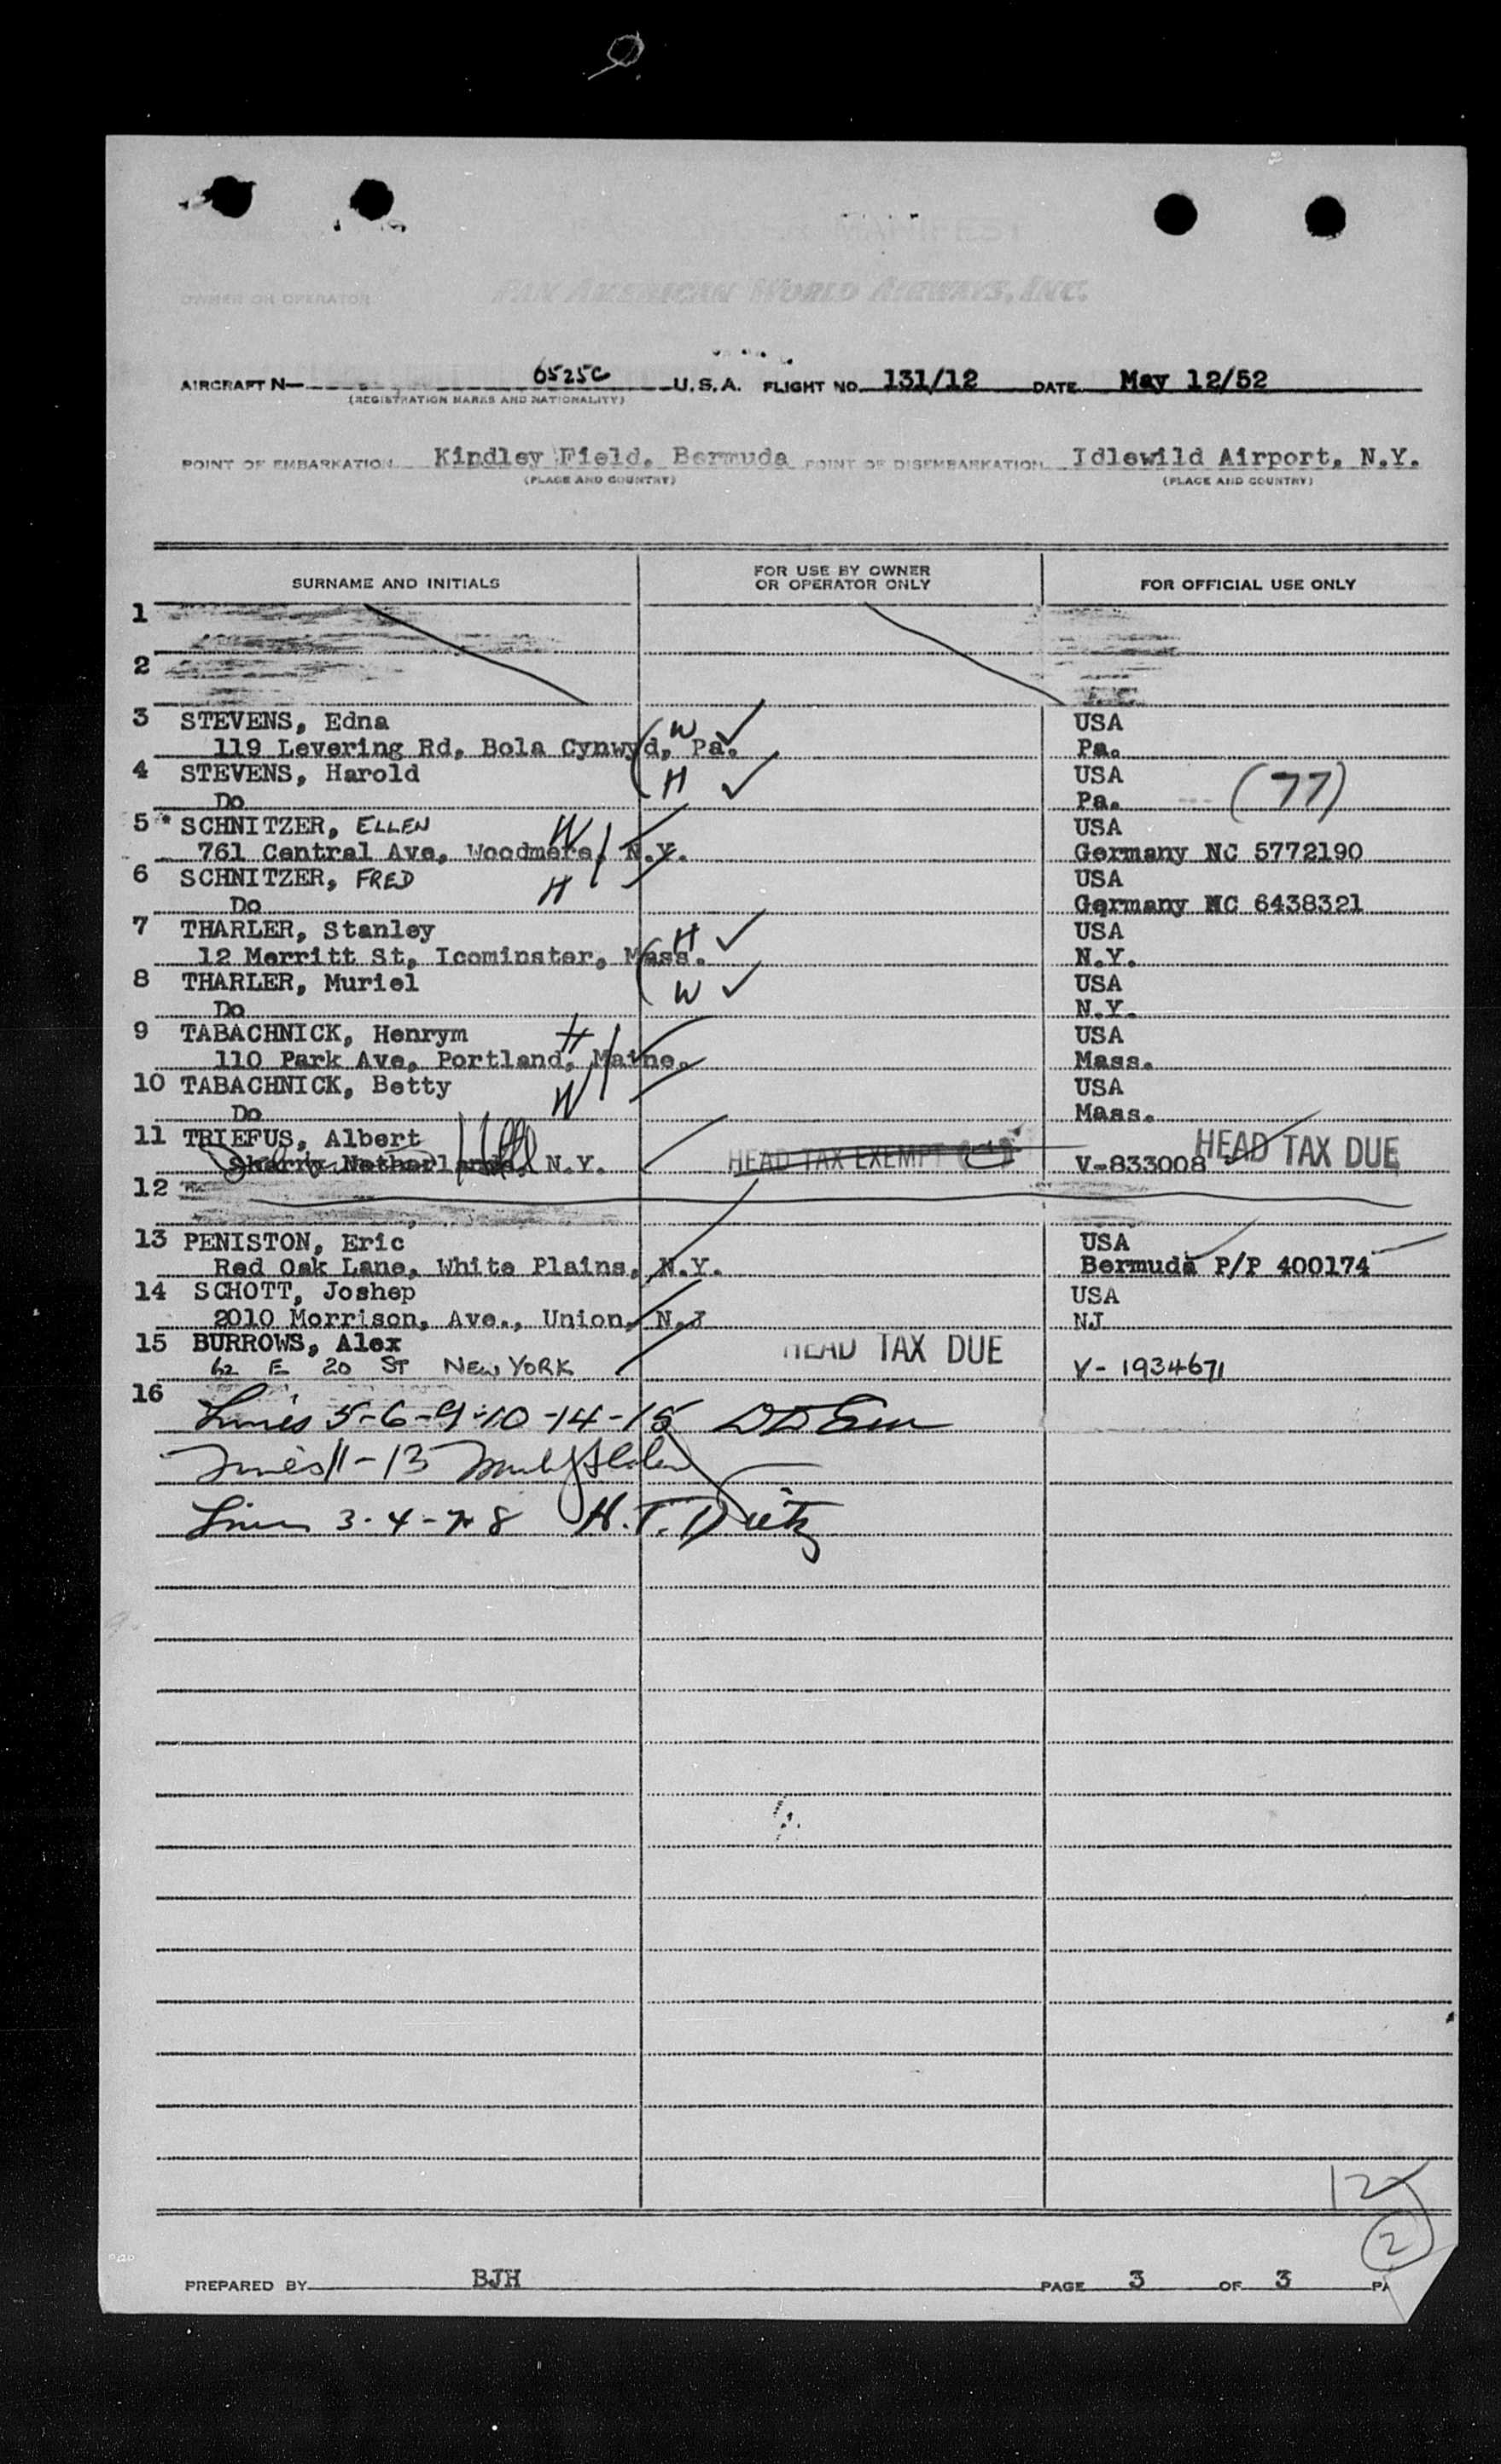 PASSENGER MANIFEST
OWNER OR OPERATOR PAN AMERICAN WORLD AIRWAYS, INC.
AIRCRAFT N— 6525C U.S.A. FLIGHT NO. 131/12 DATE May 12/52
(REGISTRATION MARKS AND NATIONALITY)
POINT OF EMBARKATION Kindley Field, Bermuda POINT OF DISEMBARKATION Idlewild Airport, N.Y.
(PLACE AND COUNTRY) (PLACE AND COUNTRY)
SURNAME AND INITIALS FOR USE BY OWNER OR OPERATOR ONLY FOR OFFICIAL USE ONLY
1
2
3 STEVENS, Edna W USA
119 Levering Rd, Bola Cynwyd, Pa. Pa.
4 STEVENS, Harold H USA (77)
Do Pa.
5 SCHNITZER, ELLEN W USA
761 Central Ave, Woodmere, N.Y. Germany NC 5772190
6 SCHNITZER, FRED H USA
Do Germany NC 6438321
7 THARLER, Stanley H USA
12 Merritt St, Icominster, Mass. N.Y.
8 THARLER, Muriel W USA
Do N.Y.
9 TABACHNICK, Henrym H USA
110 Park Ave, Portland, Maine. Mass.
10 TABACHNICK, Betty W USA
Do Mass.
11 TRIEFUS, Albert HEAD TAX DUE
Sherry Netherlands, N.Y. HEAD TAX EXEMPT V-833008
12
13 PENISTON, Eric USA
Red Oak Lane, White Plains, N.Y. Bermuda P/P 400174
14 SCHOTT, Joshep USA
2010 Morrison, Ave., Union, N.J NJ
15 BURROWS, Alex HEAD TAX DUE
62 E 20 ST NEW YORK V-1934671
16
Lines 5-6-9-10-14-15
Lines 11-13
Lines 3-4-7-8 H.T. Dietz
12
2
PREPARED BY BJH PAGE 3 OF 3 PA